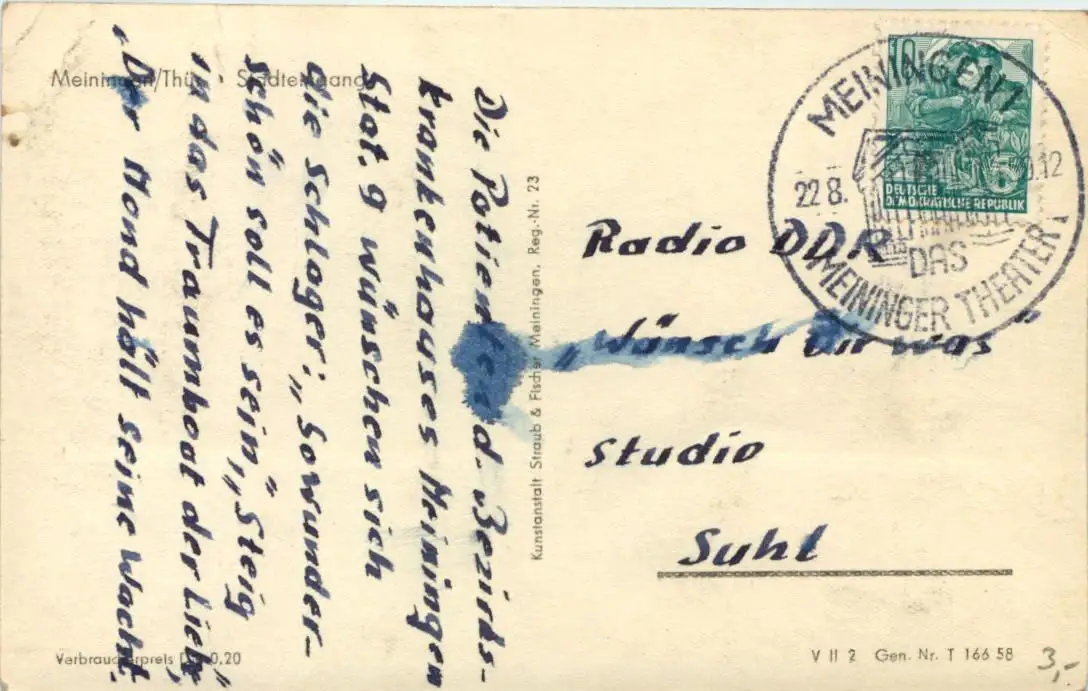 Meiningen/Thür. Stadteingang
Die Patienten d. Bezirks-
krankenhauses Meiningen
Stat. 9 wünschen sich
die Schlager: „So wunder-
schön soll es sein", „Steig
in das Traumboot der Liebe"
„Der Mond hält seine Wacht."
Verbraucherpreis 0.20
Kunstanstalt Straub & Fischer Meiningen, Reg.-Nr. 23
10
DEUTSCHE
DEMOKRATISCHE REPUBLIK
MEININGEN 1
22.8.
12
DAS
MEININGER THEATER
Radio DDR
„Wünsch dir was"
Studio
Suhl
V II 2 Gen. Nr. T 166 58
3,-